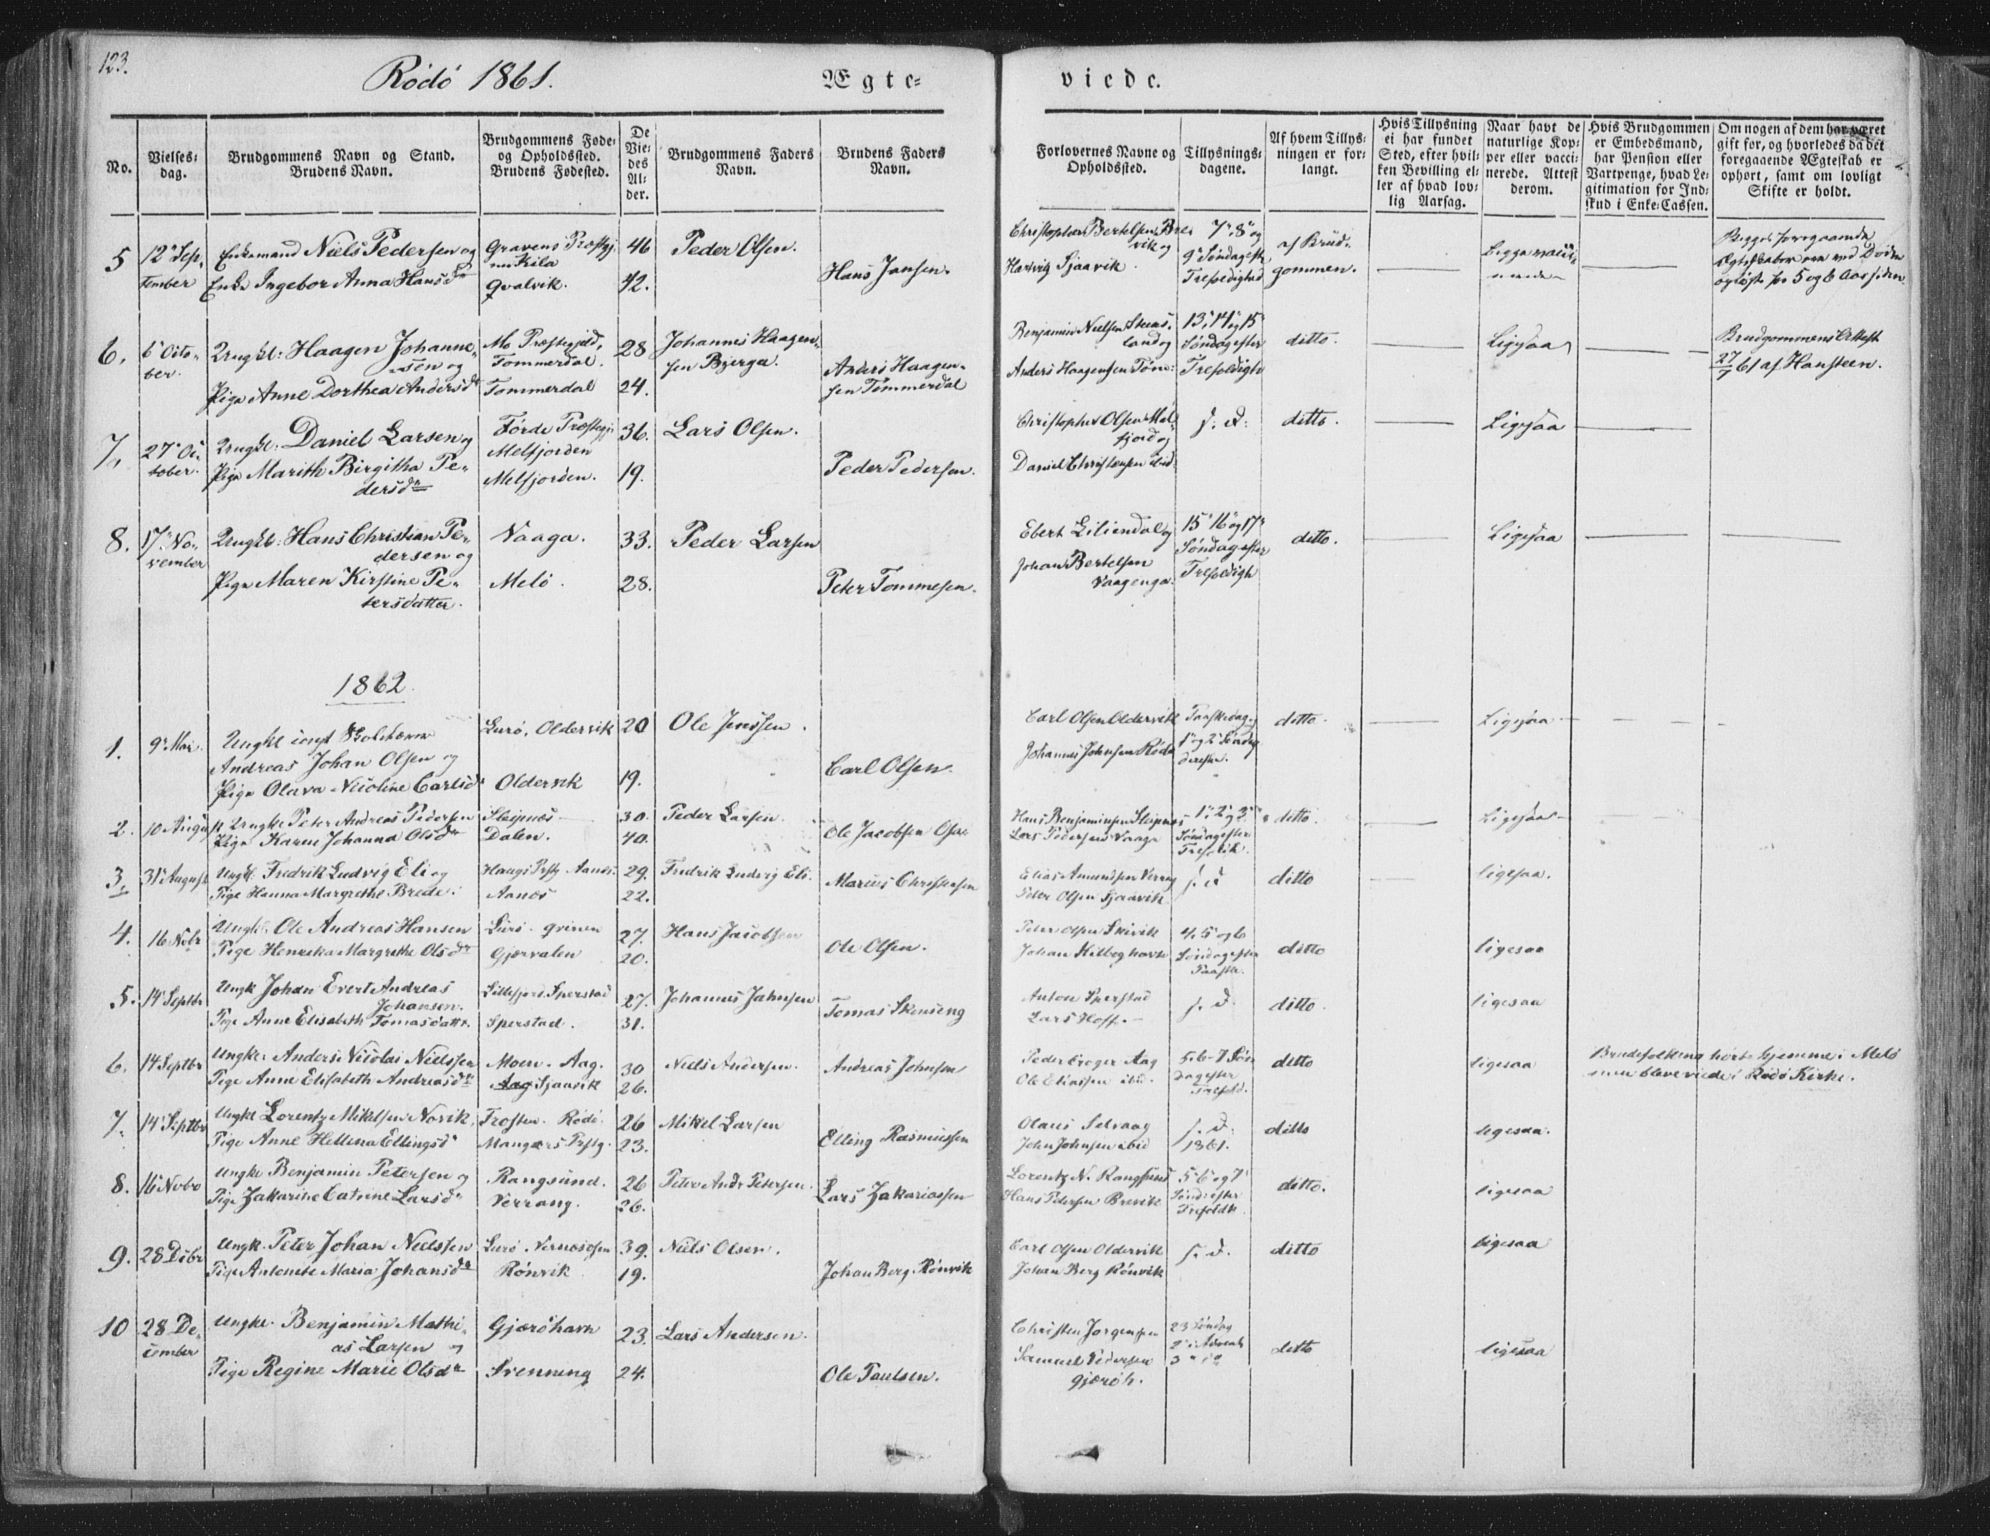 123.
Rödö 1861.
Ægte=
viede.
No.
Vielses=
dag.
Brudgommens Navn og Stand.
Brudens Navn.
Brudgommens Føde=
og Opholdssted.
Brudens Fødested.
De
Vie=
des
Al=
der.
Brudgommens Faders
Navn.
Brudens Faders
Navn.
Forlovernes Navne og
Opholdssted.
Tillysnings=
dagene.
Af hvem Tillys=
ningen er for=
langt.
Hvis Tillysning
ei har fundet
Sted, efter hvil=
ken Bevilling el=
ler af hvad lov=
lig Aarsag.
Naar havt de
naturlige Kop=
per eller vacci=
nerede. Attest
derom.
Hvis Brudgommen
er Embedsmand,
har Pension eller
Vartpenge, hvad Le=
gitimation for Ind=
skud i Enke=Cassen.
Om nogen af dem har været
gift før, og hvorledes da det
foregaaende Ægteskab er
ophørt, samt om lovligt
Skifte er holdt.
5
12te Sep-
tember
Enkemand Niels Pedersen og
Enke Ingebor Anna Hansdr
Gravens Præstgj.
Kila
Qvalvik.
46
42.
Peder Olsen.
Hans Jansen.
Christopher Bertelsen Bre
vik og
Hartvig Sjaavik.
7de 8de og
9de Søndag eft
Trefoldighed
af Brud-
gommen.
Begge vacci-
nerede
Begges foregaaende
Ægteskaber ere ved Døden
opløste for 5 og 6 Aar siden
6.
6te Octo-
ber.
Ungkl: Haagen Johanne-
sen og
Pige Anne Dorthea Andersdr
Mo Præstegjeld,
Tømmerdal.
Tømmerdal
28
24.
Johannes Haagen-
sen Bjerga.
Anders Haagen-
sen Tømmerdal
Benjamin Nielsen Stens-
land og
Anders Haagensen Tøm:
13, 14 og 15
Søndag efter
Trefoldigh
ditto.
Ligesaa
Brudgommens Attest
27/7 61 af Hansteen.
7.
27de Oc-
tober.
Ungkl: Daniel Larsen og
Pige Marith Birgitha Pe-
dersdr
Førde Præstegj:
Melfjorden
Melfjorden.
36.
19.
Lars Olsen.
Peder Pedersen.
Christopher Olsen Mel-
fjord og
Daniel Christensen ibid
s: d:
ditto.
Ligesaa
8.
17. No-
vember
Ungkl: Hans Christian Pe-
dersen og
Pige Maren Kirstine Pe-
tersdatter.
Vaaga.
Melö.
33.
28.
Peder Larsen
Peter Tommesen.
Ebert Liliendal og
Johan Bertelsen
Vaagenga.
15de 16de og 17de
Søndag efter
Trefoldigh
ditto.
Ligesaa
1862
1.
9de Mai.
Ungkl
Andreas Johan Olsen og
Pige Olava Nicoline Carlsdr
Lurö, Oldervik
Oldervik
20
19.
Ole Jenssen.
Carl Olsen.
Carl Olsen Oldervik
Johannes Johnsen Rödö
Paaskedag
1ste og 2den Søndag
ditto.
Ligesaa
2.
10 August
Ungke Peter Andreas Pedersen
Pige Karen Johanna Olsdr
Sleipnes
Dalen.
30.
40.
Peder Larsen.
Ole Jacobsen
Hans Benjaminsen Sleipnes
Lars Pedersen Vaaga
1, 2 og 3
Søndag efter
ditto.
Ligesaa
3.
31te August
Ungk. Fredrik Ludvig Eli og
Pige Hanna Margrethe Brede.
Haugs Præstg Aanes.
Aanes
29.
22.
Fredrik Ludvig Eli.
Marius Christensen
Elias Amundsen Verrang
Peter Olsen Sjaavik
s. d
ditto
ligesaa.
4.
16 Nobr
Ungk: Ole Andreas Hansen
Pige Henrika Margrethe Olsdr
Lurö. Grinen
Gjervalen
27.
20.
Hans Jacobsen
Ole Olsen.
Peter Olsen Skivik
Johan Kilboghavn
4, 5 og 6
Søndag efter
Paaske.
ditto
ligesaa
5.
14 Septbr
Ungk Johan Evert Andreas
Johansen.
Pige Anne Elisabeth Tomasdattr.
Sperstad
Sperstad.
27.
31.
Johannes Jahnsen
Tomas Skonseng
Anton Sperstad
Lars Hoff.
s. d.
ditto.
ligesaa
6.
14 Septbr
Ungke: Anders Nicolai Nielssen
Pige Anne Elisabeth Andreasdr
Moen. Aag.
Aag Sjaavik
30
26.
Niels Andersen.
Andreas Johnsen
Peder Kroger Aag
Ole Eliassen ibid.
5. 6 - 7 Søn
dag efter
Trefold.
ditto
ligesaa
Brudefolkene hører hjemme i Melö
men bleve viede i Rödö Kirke.
7.
14 Septbr
Ungke Lorentz Mikelsen Norvik.
Pige Anne Hellena Ellingsdr
Trosten. Rödö.
Mangers Præstg.
26
23.
Mikel Larsen
Elling Rasmussen
Olaus Selvaag
John Johnsen ibid
s. d.
1861.
ditto
ligesaa.
8.
16 Nobr
Ungke Benjamin Petersen og
Pige Zakarine Catrine Larsdr
Rangsund.
Verrang.
26
26.
Peter Andr Petersen.
Lars Zakariassen
Lorentz N. Rangsund
Hans Pedersen Brevik
5 6 og 7
Sønd: efter
Trefoldh.
ditto.
ligesaa
9.
28 Dcbr
Ungk. Peter Johan Nielssen
Pige Antonette Maria Johansdr
Lurö. Nernæsosen
Rönvik
39.
19.
Niels Olsen.
Johan Berg. Rönvik
Carl Olsen Oldervik
Johan Berg Rönvik
s. d.
ditto
ligesaa
10
28 De-
cember
Ungke. Benjamin Mathi-
as Larsen og
Pige Regine Marie Olsdr
Gjeröhavn
Svenning
23.
24.
Lars Andersen.
Ole Paulsen.
Christen Jorgensen
Samuel Pedersen
Gjeröh.
23 Søndag
2de i Advent
3
ditto
ligesaa